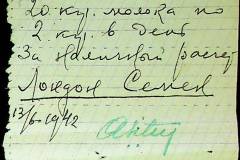 20 кур. молока по
2 кур. в день
За наличный расчет
Лондон Семен
13/6 1942